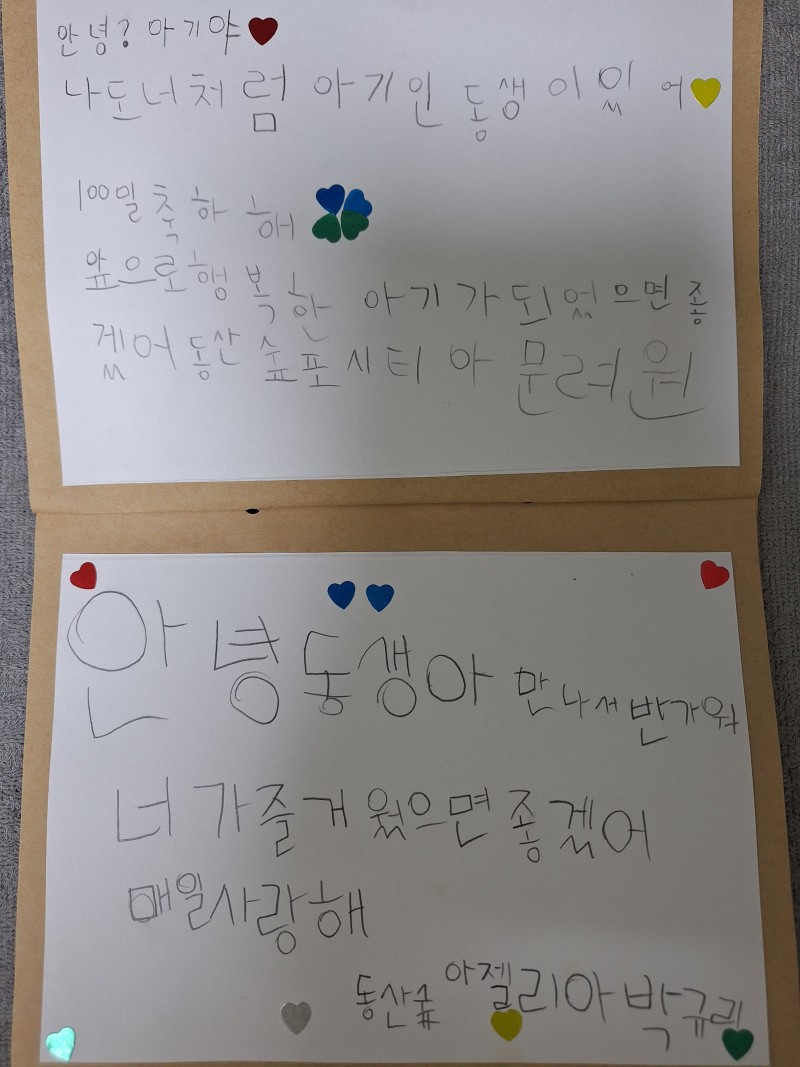 안녕? 아기야
나도너처럼 아기인 동생이있어
100일축하해
앞으로행복한 아기가되었으면좋
겠어동산숲포시티아 문려원
안녕동생아 만나서반가워
너가즐거웠으면좋겠어
매일사랑해
동산숲 아젤리아박규리